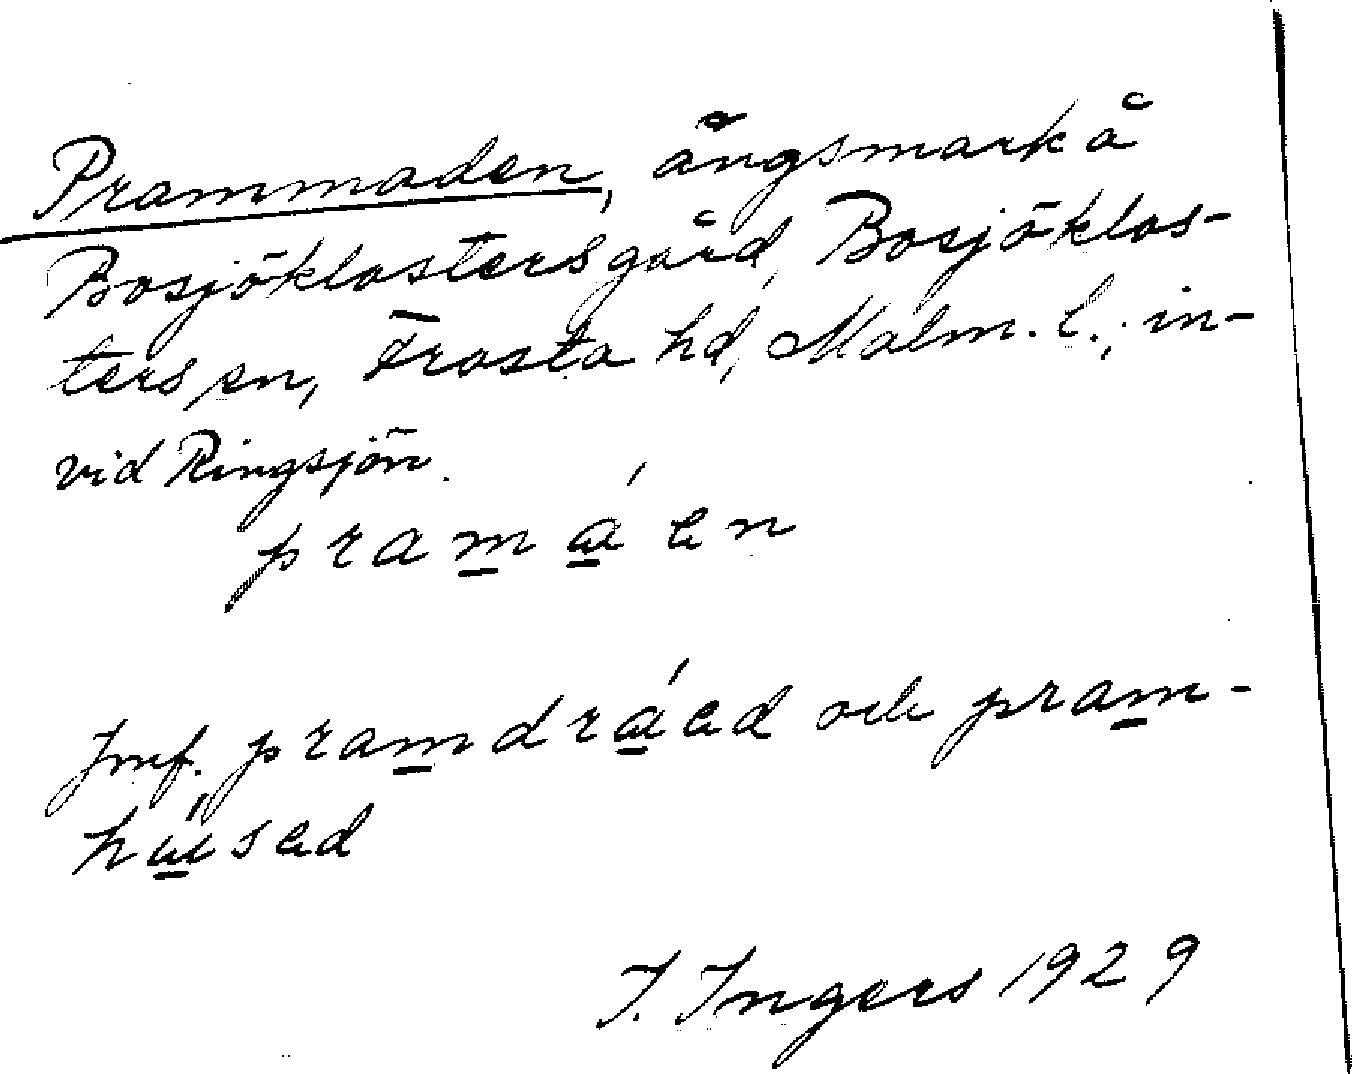 Prammaden, ängsmark å
Bosjöklostersgård, Bosjöklos-
ters sn, Frosta hd, Malm. l., in-
vid Ringsjön.
pramáen
Jmf. pramdráed och pram-
húsed
I. Ingers 1929